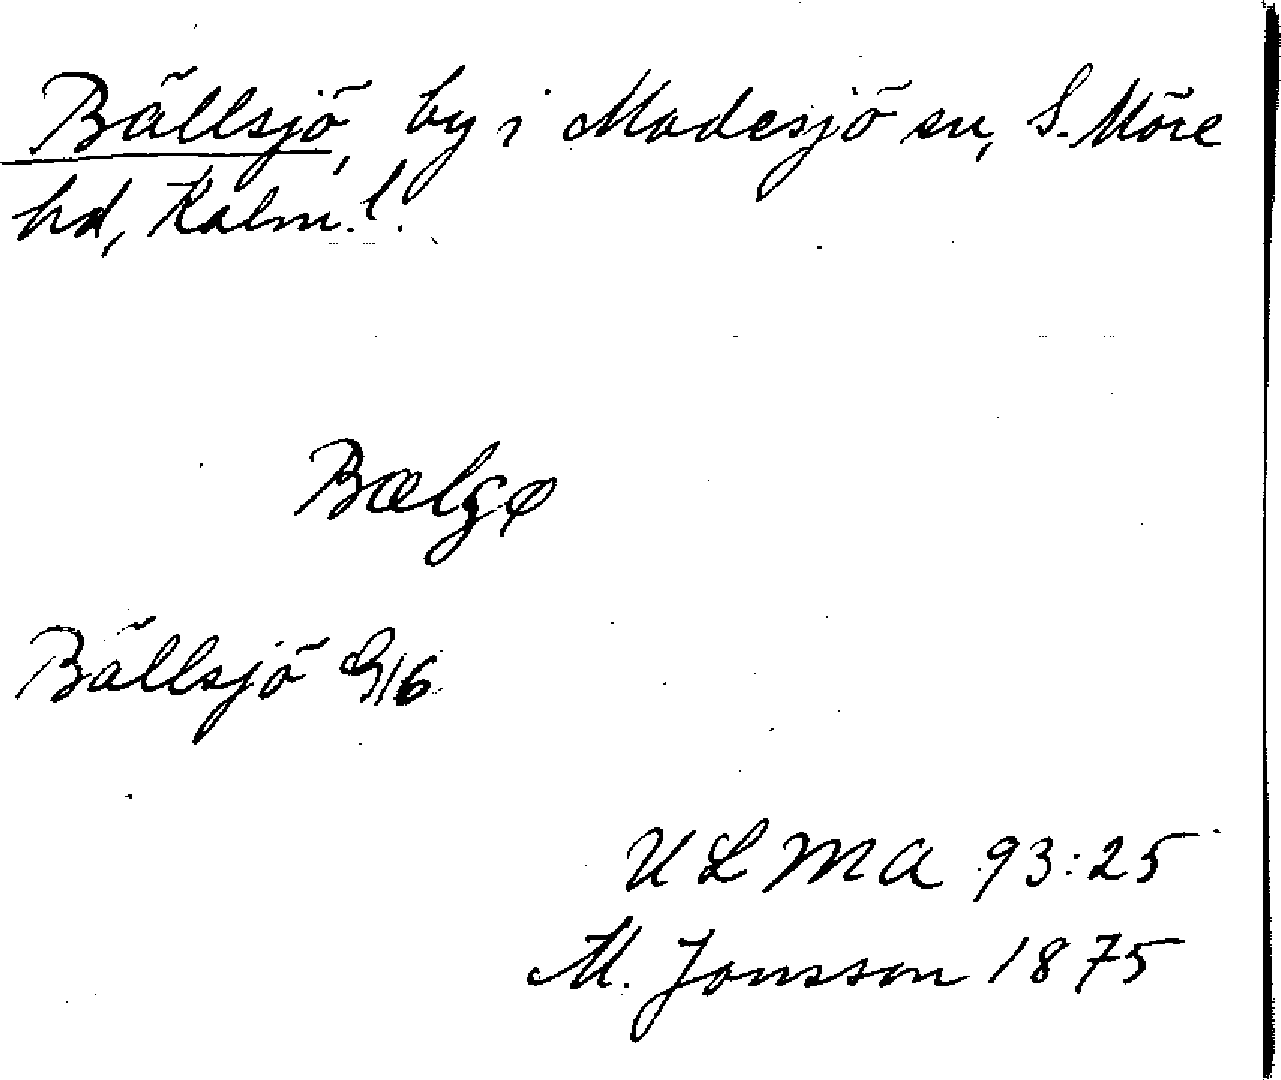 Bällsjö, by i Madesjö sn, S. Möre
hd, Kalm. l.
Bælgø
Bällsjö G16
ULMA 93:25
M. Jonsson 1875